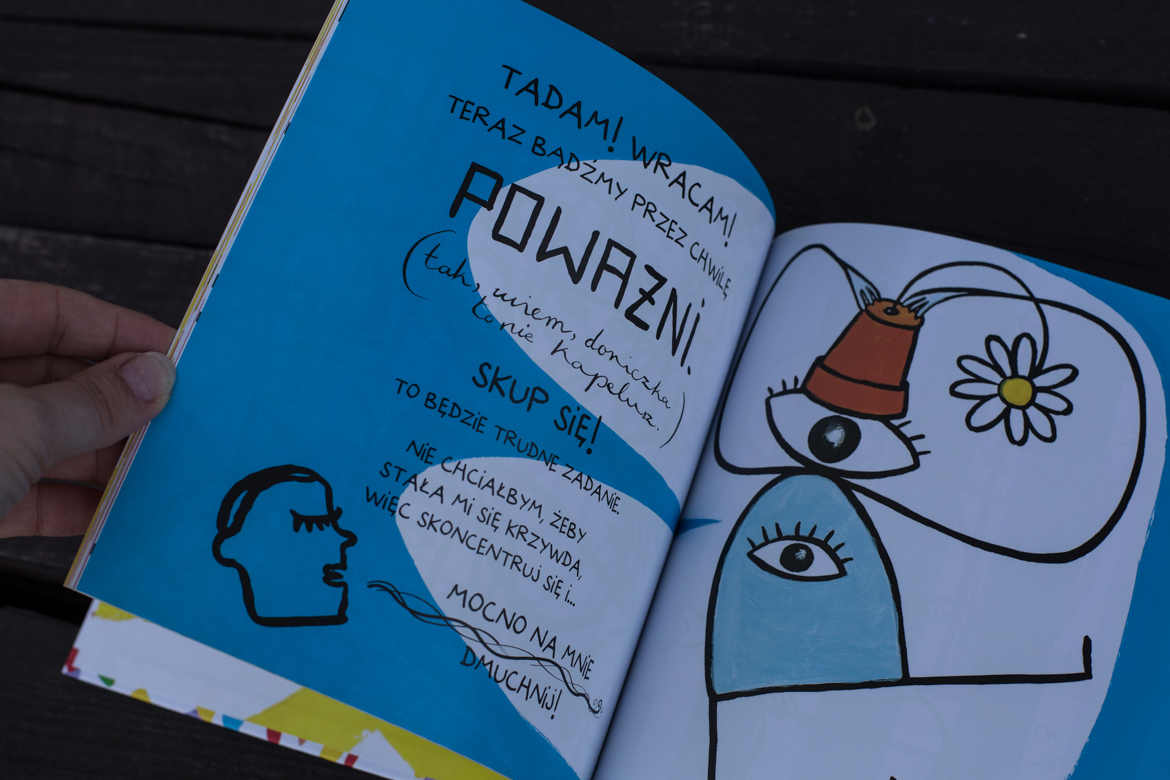 TADAM! WRACAM!
TERAZ BĄDŹMY PRZEZ CHWILĘ
POWAŻNI.
(tak, wiem, doniczka
to nie kapelusz.)
SKUP SIĘ!
TO BĘDZIE TRUDNE ZADANIE.
NIE CHCIAŁBYM, ŻEBY
STAŁA MI SIĘ KRZYWDA,
WIĘC SKONCENTRUJ SIĘ I...
MOCNO NA MNIE
DMUCHNIJ!